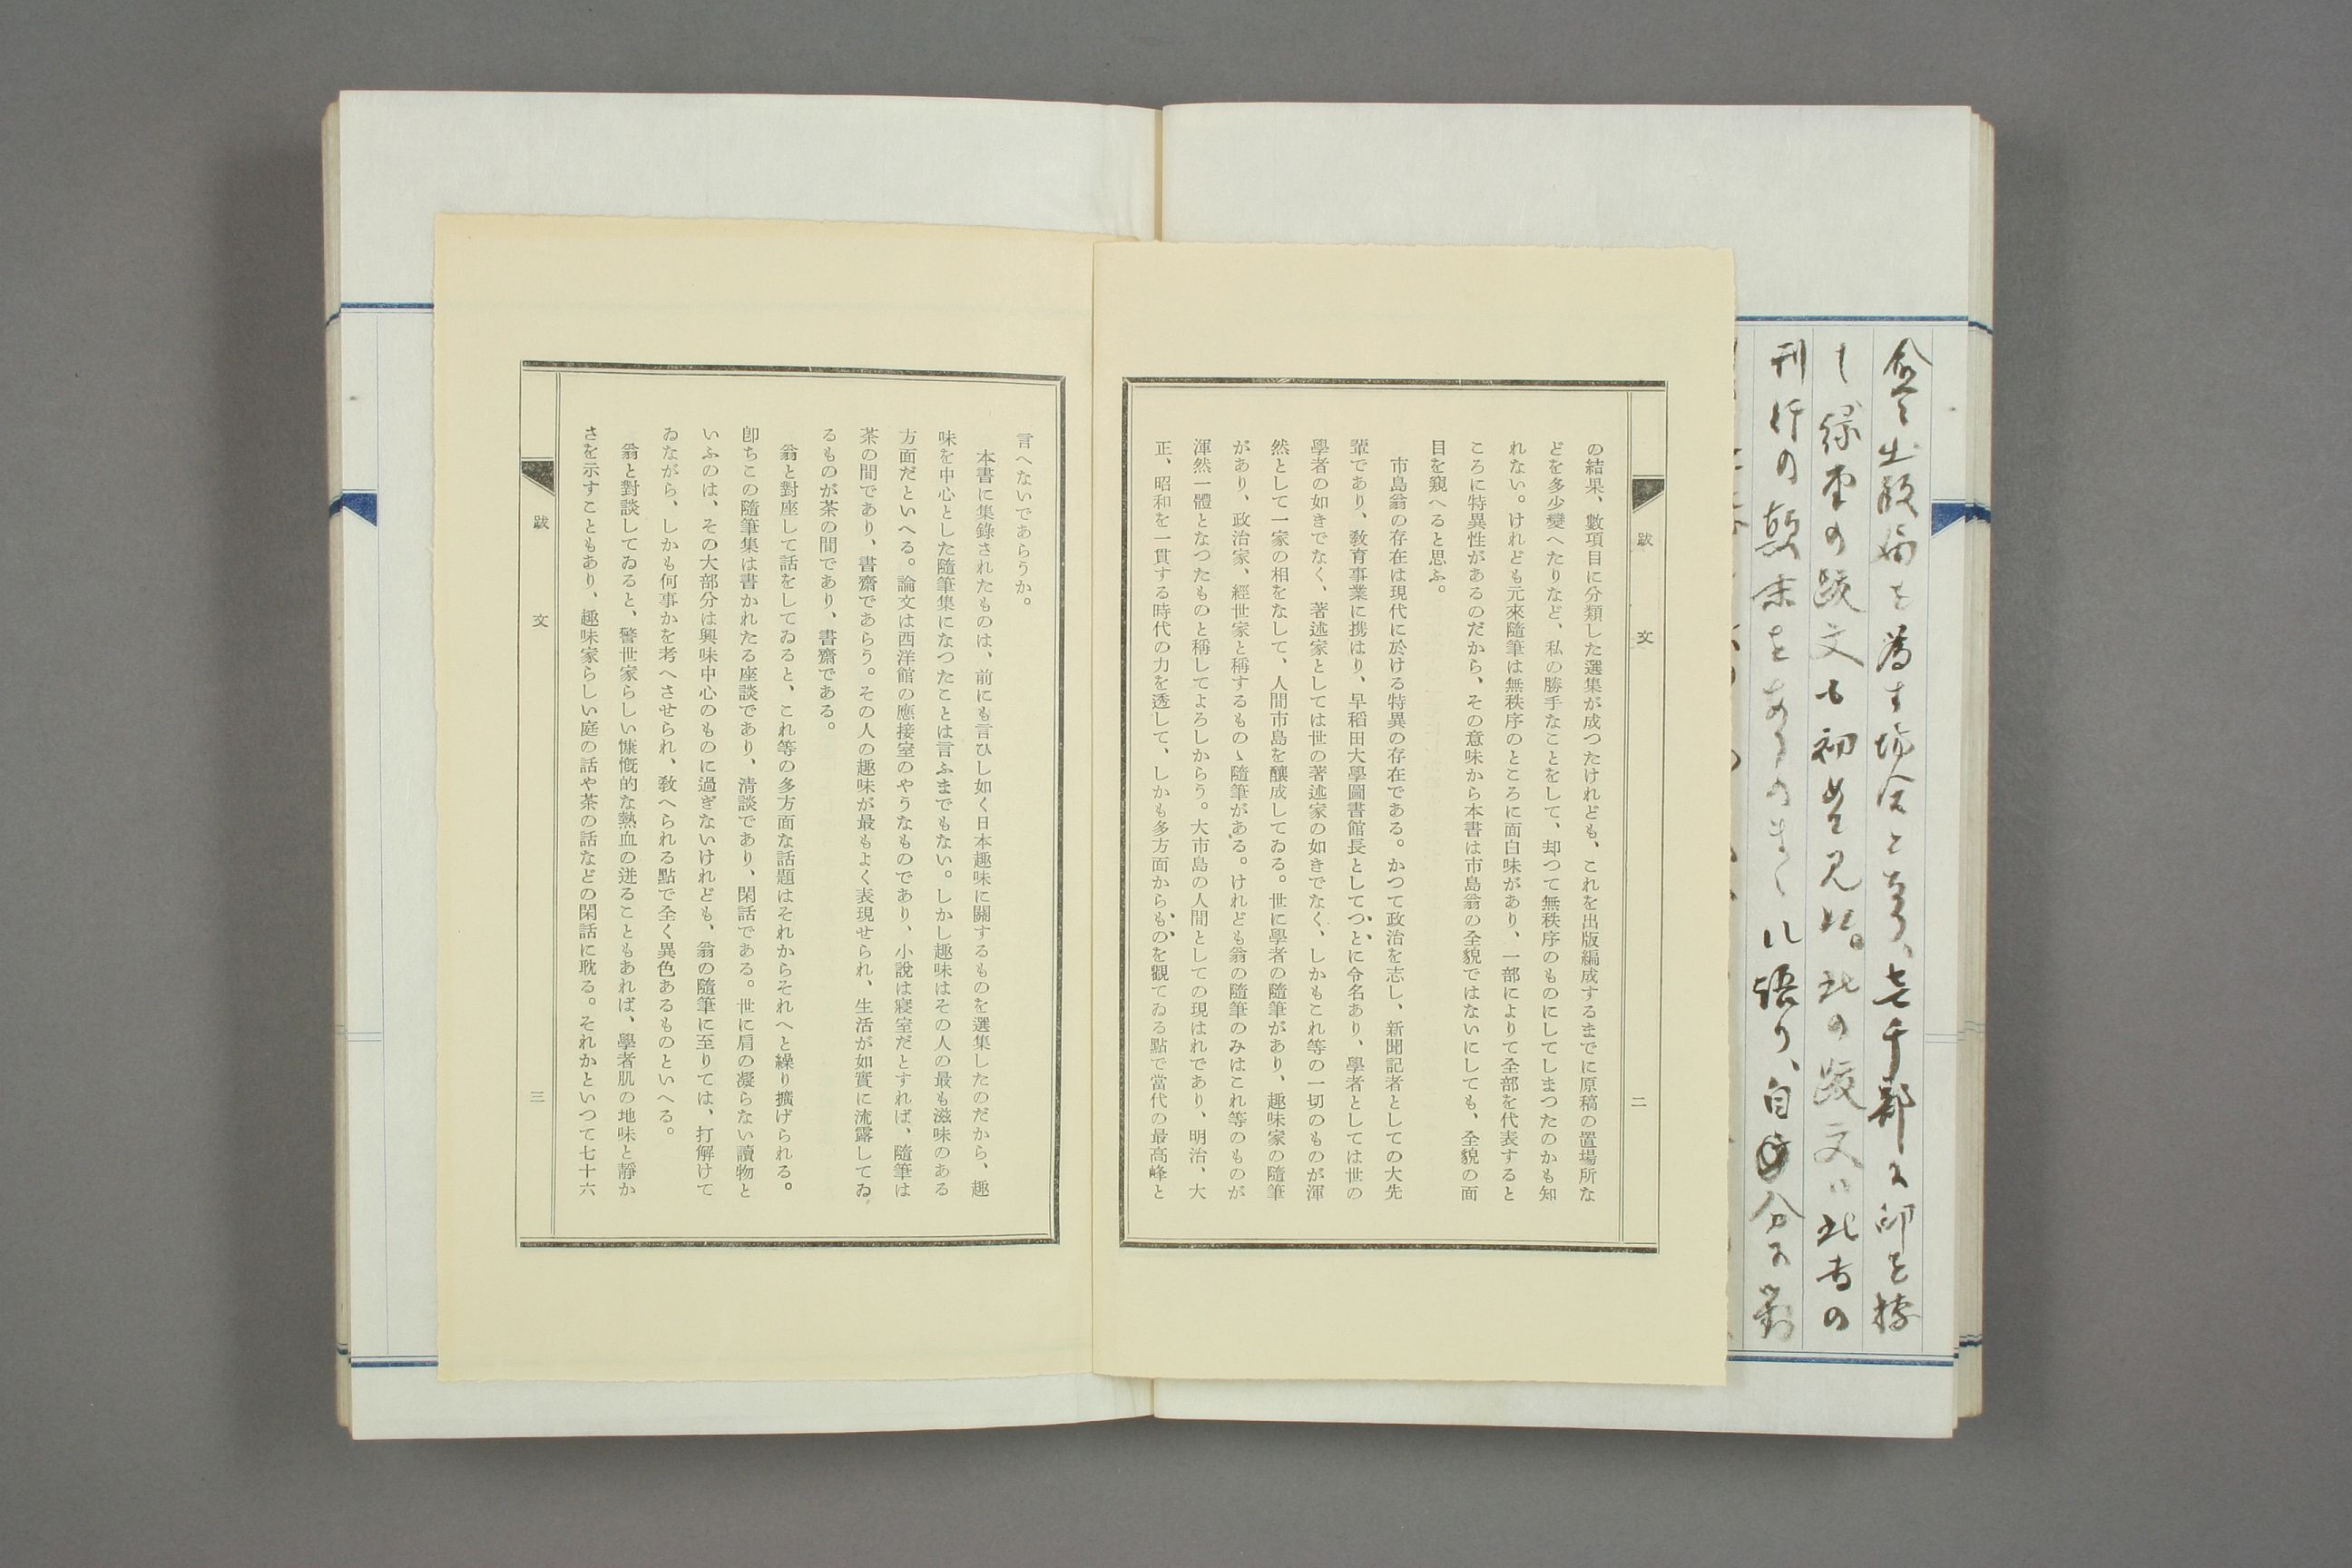 し緑雲の跋文も初めて見た。此の跋文は此書の
刊行の顛末をありのまゝに語り、自分に対
跋文
二
の結果、數項目に分類した選集が成つたけれども、これを出版編成するまでに原稿の置場所な
どを多少變へたりなど、私の勝手なことをして、却つて無秩序のものにしてしまつたのかも知
れない。けれども元來隨筆は無秩序のところに面白味があり、一部によりて全部を代表すると
ころに特異性があるのだから、その意味から本書は市島翁の全貌ではないにしても、全貌の面
目を窺へると思ふ。
市島翁の存在は現代に於ける特異の存在である。かつて政治を志し、新聞記者としての大先
輩であり、敎育事業に携はり、早稻田大學圖書館長としてつとに令名あり、學者としては世の
學者の如きでなく、著述家としては世の著述家の如きでなく、しかもこれ等の一切のものが渾
然として一家の相をなして、人間市島を釀成してゐる。世に學者の隨筆があり、趣味家の隨筆
があり、政治家、經世家と稱するものゝ隨筆がある。けれども翁の隨筆のみはこれ等のものが
渾然一體となつたものと稱してよろしからう。大市島の人間としての現はれであり、明治、大
正、昭和を一貫する時代の力を透して、しかも多方面からものを觀てゐる點で當代の最高峰と
言へないであらうか。
本書に集錄されたものは、前にも言ひし如く日本趣味に關するものを選集したのだから、趣
味を中心とした隨筆集になつたことは言ふまでもない。しかし趣味はその人の最も滋味のある
方面だといへる。論文は西洋館の應接室のやうなものであり、小說は寢室だとすれば、隨筆は
茶の間であり、書齋であらう。その人の趣味が最もよく表現せられ、生活が如實に流露してゐ
るものが茶の間であり、書齋である。
翁と對座して話をしてゐると、これ等の多方面な話題はそれからそれへと繰り擴げられる。
卽ちこの隨筆集は書かれたる座談であり、淸談であり、閑話である。世に肩の凝らない讀物と
いふのは、その大部分は興味中心のものに過ぎないけれども、翁の隨筆に至りては、打解けて
ゐながら、しかも何事かを考へさせられ、敎へられる點で全く異色あるものといへる。
翁と對談してゐると、警世家らしい慷慨的な熱血の迸ることもあれば、學者肌の地味と靜か
さを示すこともあり、趣味家らしい庭の話や茶の話などの閑話に耽る。それかといつて七十六
跋文
三